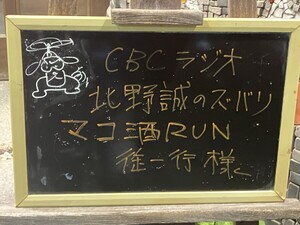 CBCラジオ
北野誠のズバリ
マコ酒RUN
御一行様